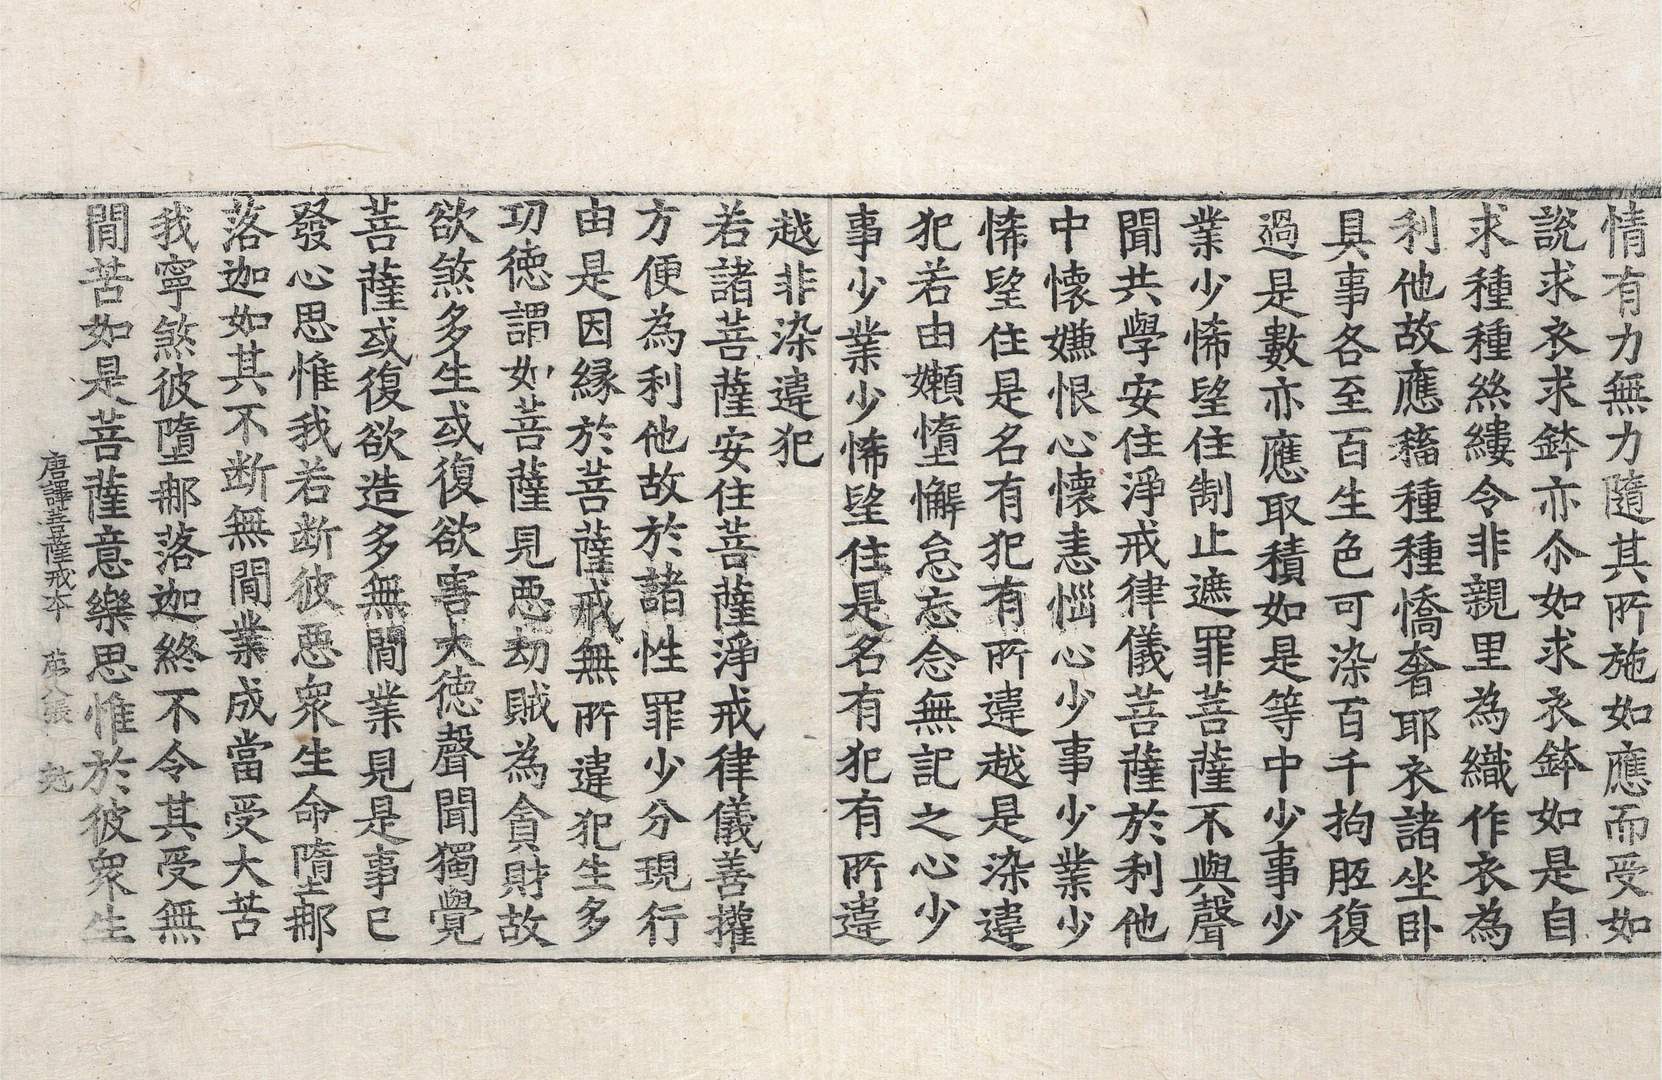 情有力無力隨其所施如應而受如
說求衣求鉢亦尒如求衣鉢如是自
求種種絲縷令非親里為織作衣為
利他故應稸種種憍奢耶衣諸坐卧
具事各至百生色可染百千拘胝復
過是數亦應取積如是等中少事少
業少悕望住制止遮罪菩薩不與聲
聞共學安住淨戒律儀菩薩於利他
中懷嫌恨心懷恚惱心少事少業少
悕望住是名有犯有所違越是染違
犯若由嬾墮懈怠忘念無記之心少
事少業少悕望住是名有犯有所違
越非染違犯
若諸菩薩安住菩薩淨戒律儀善權
方便為利他故於諸性罪少分現行
由是因緣於菩薩戒無所違犯生多
功德謂如菩薩見惡劫賊為貪財故
欲煞多生或復欲害大德聲聞獨覺
菩薩或復欲造多無間業見是事已
發心思惟我若断彼惡衆生命墮那
落迦如其不断無間業成當受大苦
我寧煞彼墮那落迦終不令其受無
間苦如是菩薩意樂思惟於彼衆生
唐譯菩薩戒本 第八張